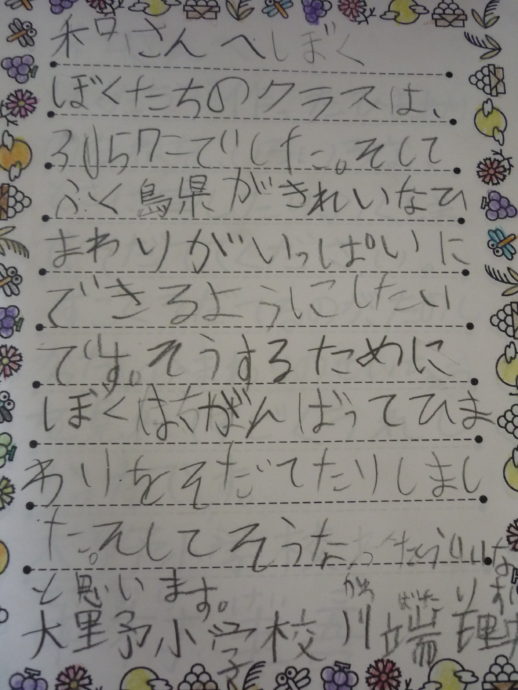 さんへ ぼく
ぼくたちのクラスは、
でした。そして
ふく島県がきれいなひ
まわりがいっぱいに
できるようにしたい
です。そうするために
がんばってひま
わりをそだてたりしまし
た。そしてそうなったらいいな
と思います。
大野小学校 川端理